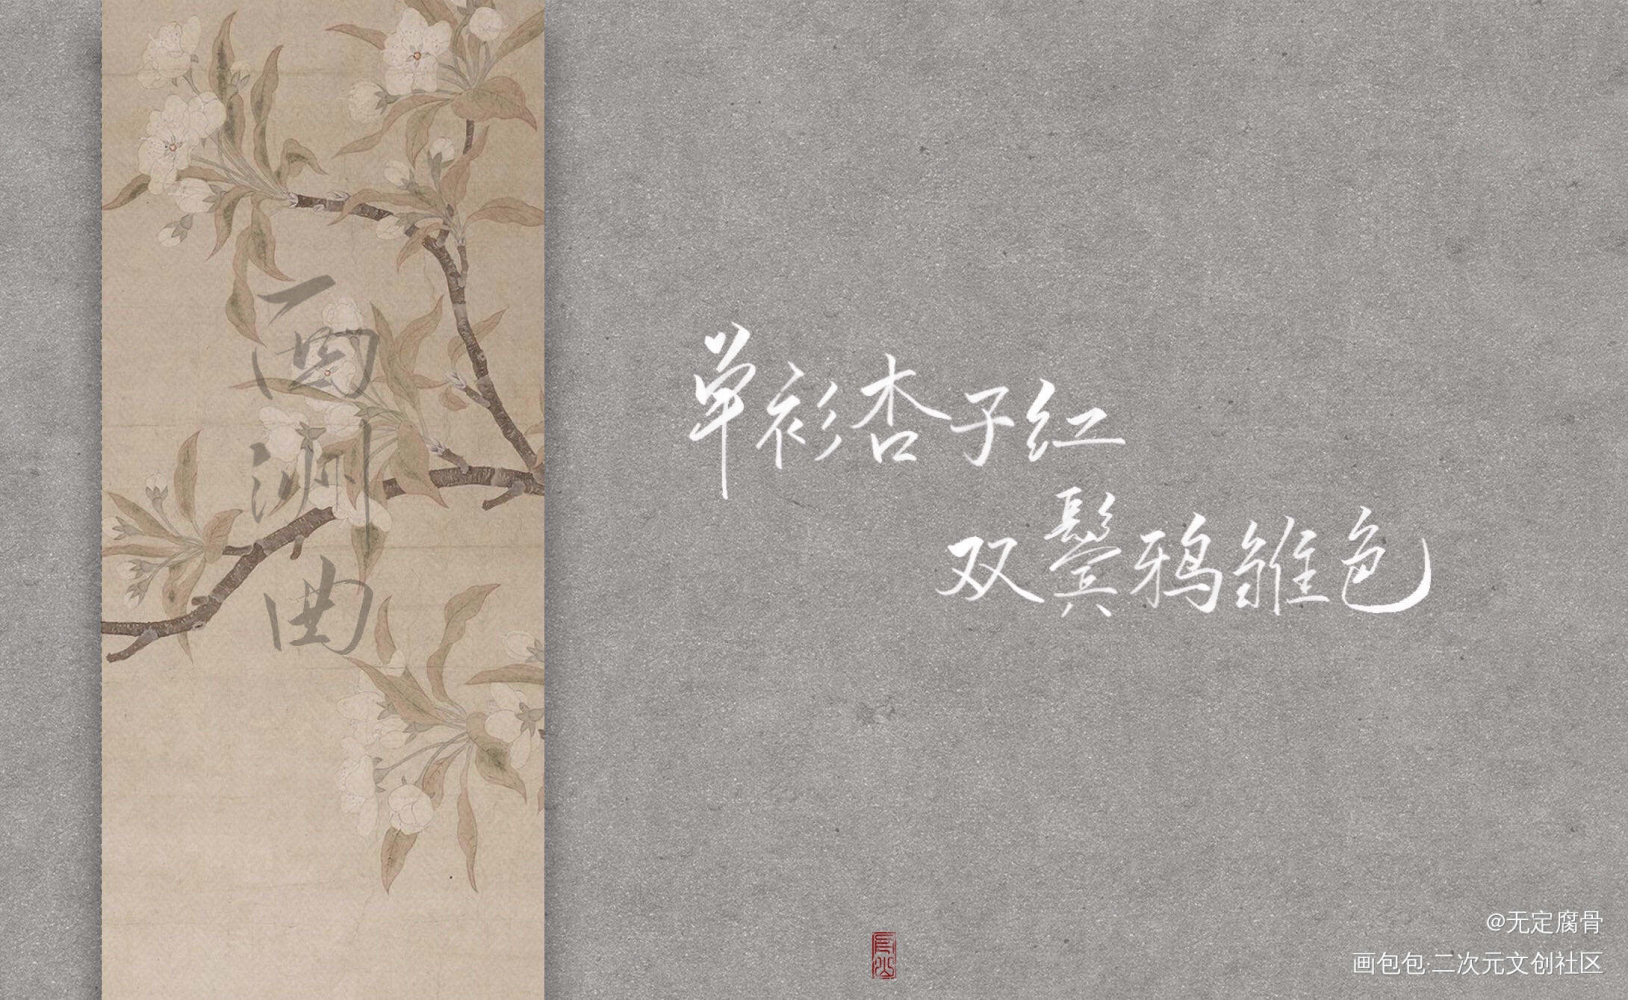 西洲曲
单衫杏子红
双鬓鸦雏色
@无定腐骨
画包包·二次元文创社区